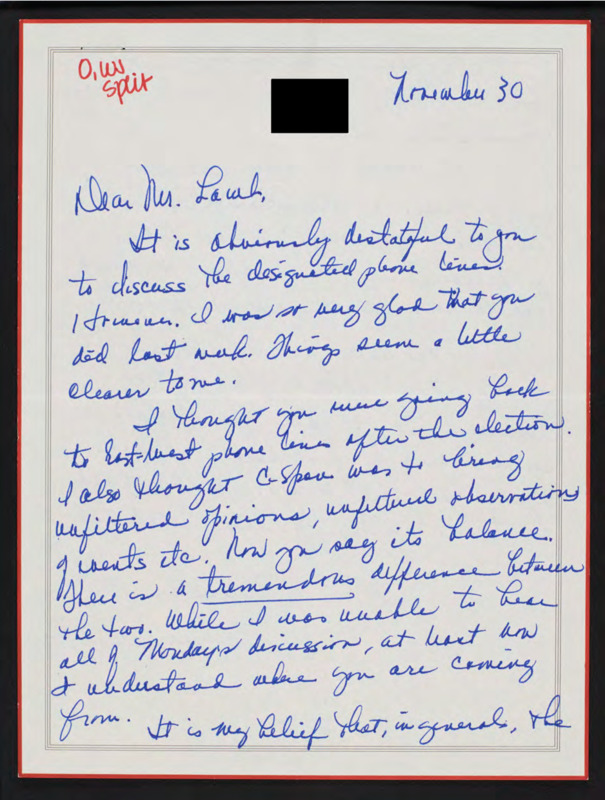 split
November 30
Dear Mr. Lamb,
It is obviously distateful to you
to discuss the designated phone lines.
However. I was so very glad that you
did last week. Things seem a little
clearer to me.
I thought you were going back
to East-West phone lines after the election.
I also thought C-Span was to bring
unfiltered opinions, unfettered observations
of events etc. Now you say its balance.
There is a tremendous difference between
the two. While I was unable to hear
all of Monday's discussion, at least now
I understand where you are coming
from. It is my belief that, in general, the